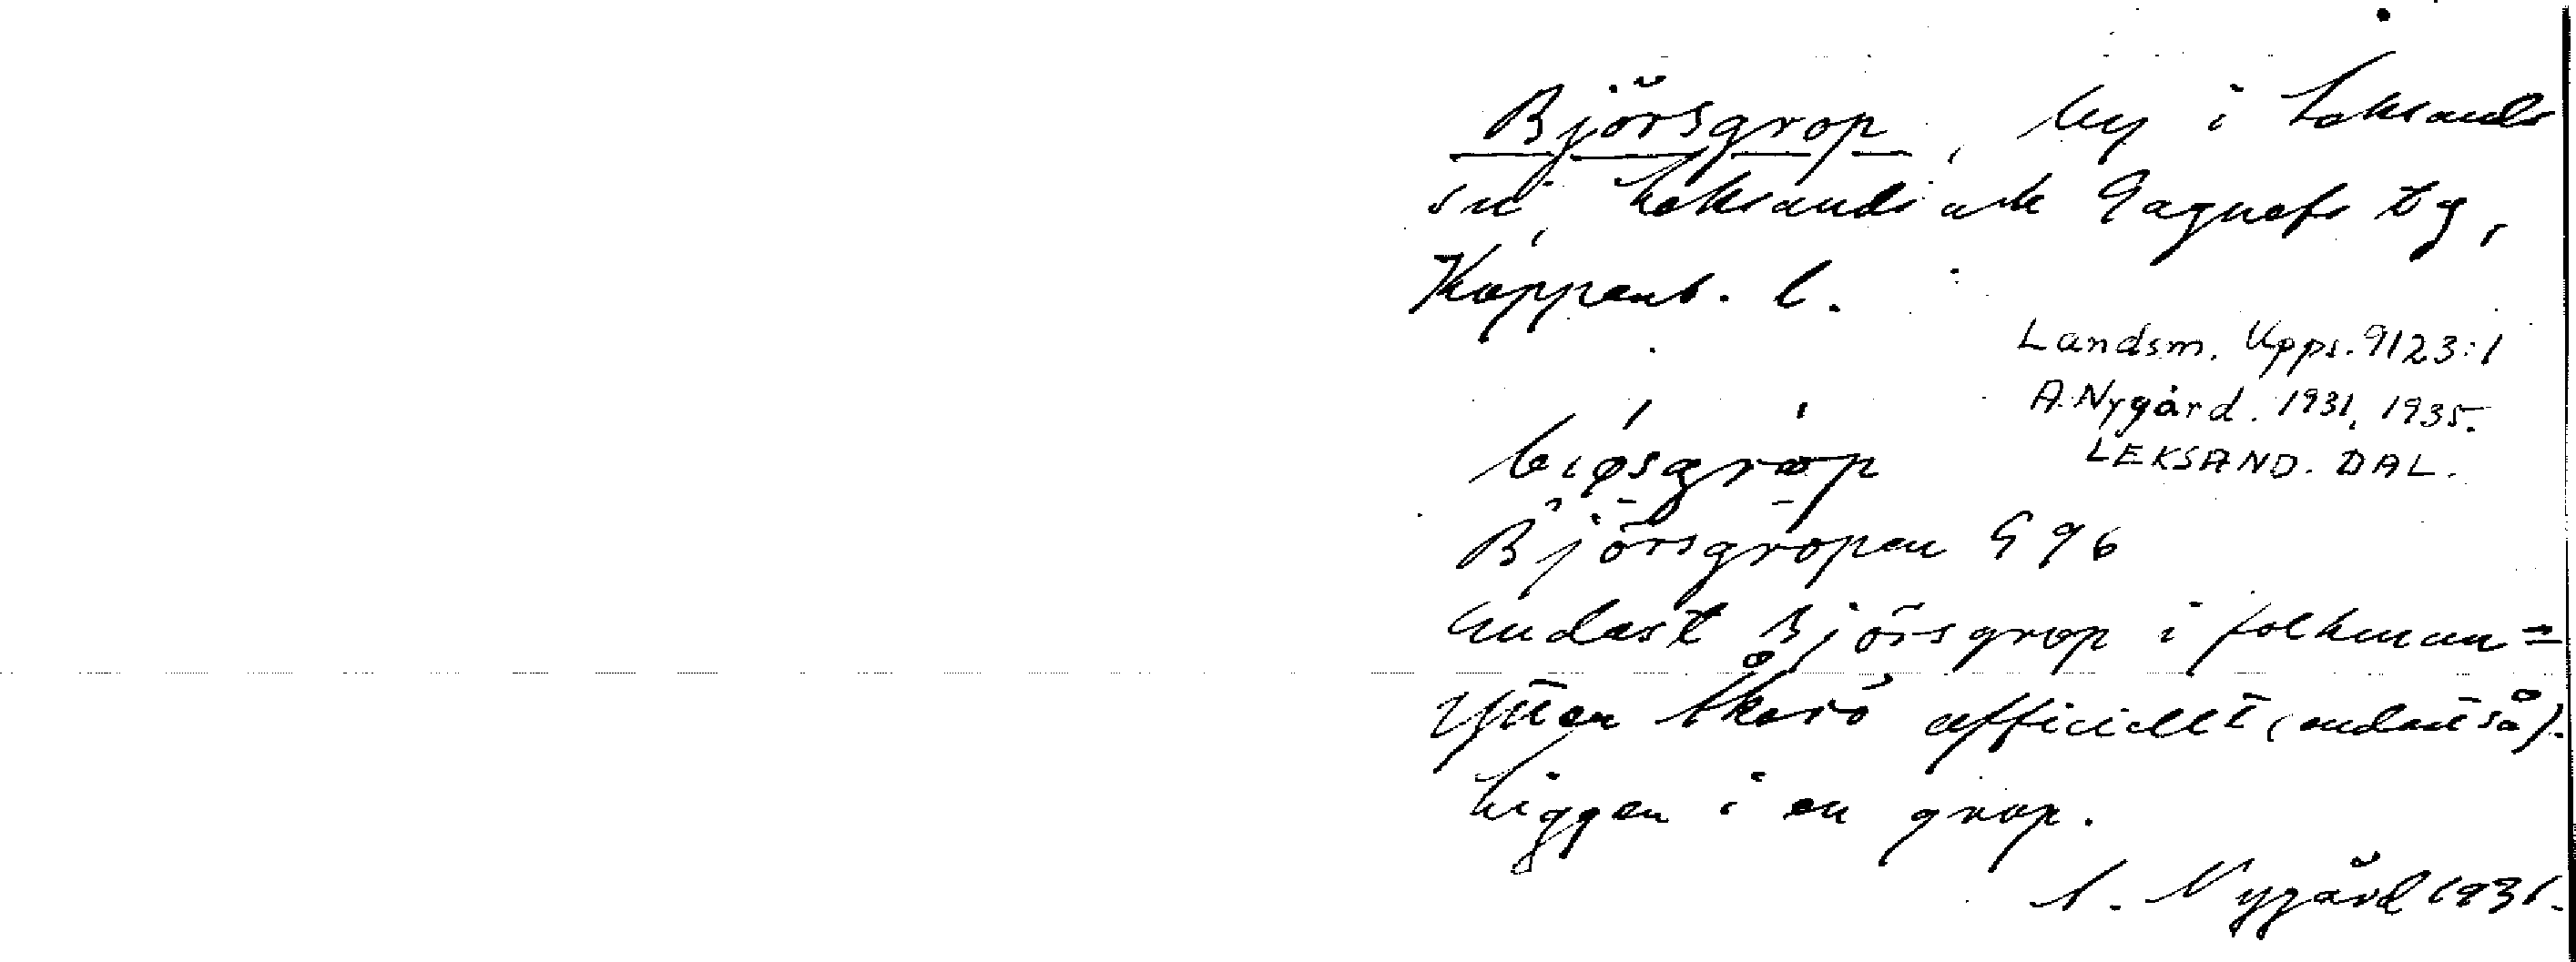 Björsgrop, by i Leksands
sn, Leksands och Gagnefs tg,
Kopparb. l.
Landsm. Upps. 9123:1
A. Nygård. 1931, 1935.
LEKSAND. DAL.
Björsgropen G 96
Endast Björsgrop i folkmun =
Ytter Åkerö officiellt (endast så).
Ligger i en grop.
A. Nygård 1931.